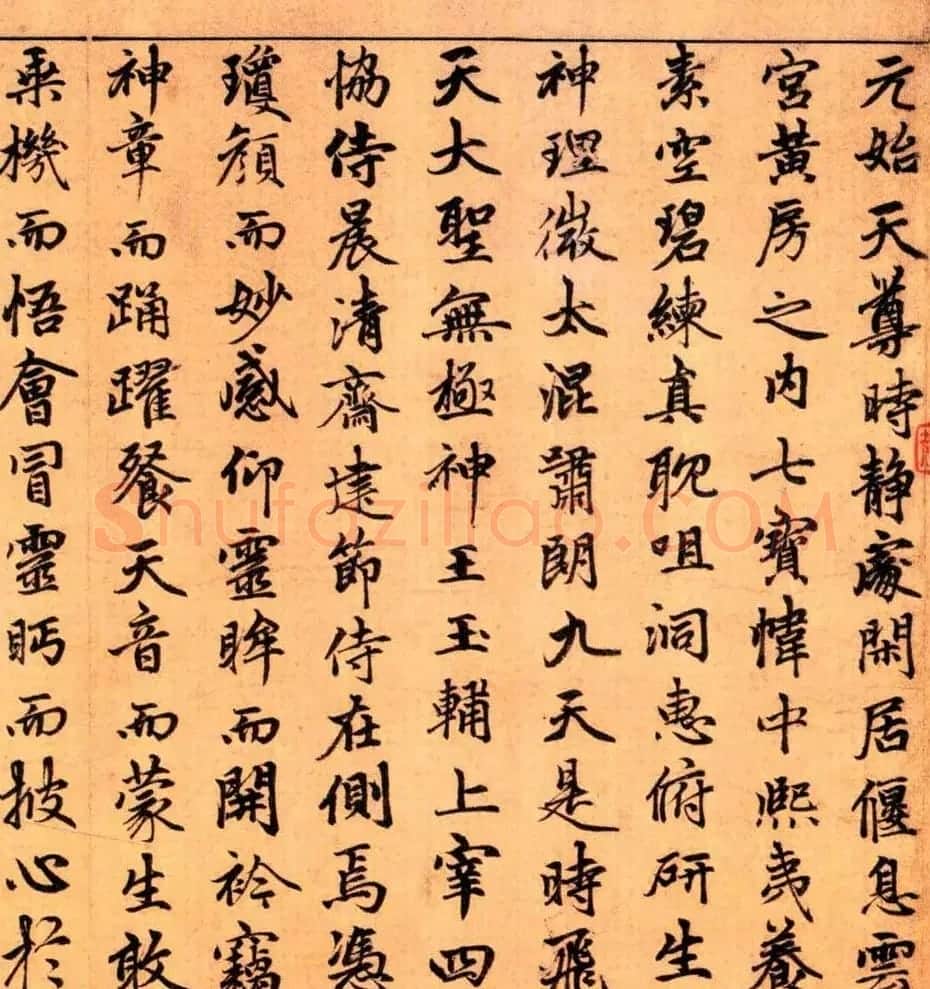 元始天尊時静處閑居偃息雲
宮黃房之内七寶幃中熙夷養
素空碧練真耽咀洞惠俯研生
神理微太混肅朗九天是時飛
天大聖無極神王玉輔上宰四
協侍晨清齋建節侍在側焉憑
瓊顔而妙感仰靈眸而開衿竊
神章而踊躍餐天音而蒙生敢
乘機而悟會冒靈眄而披心於
Shufaziliao.COM